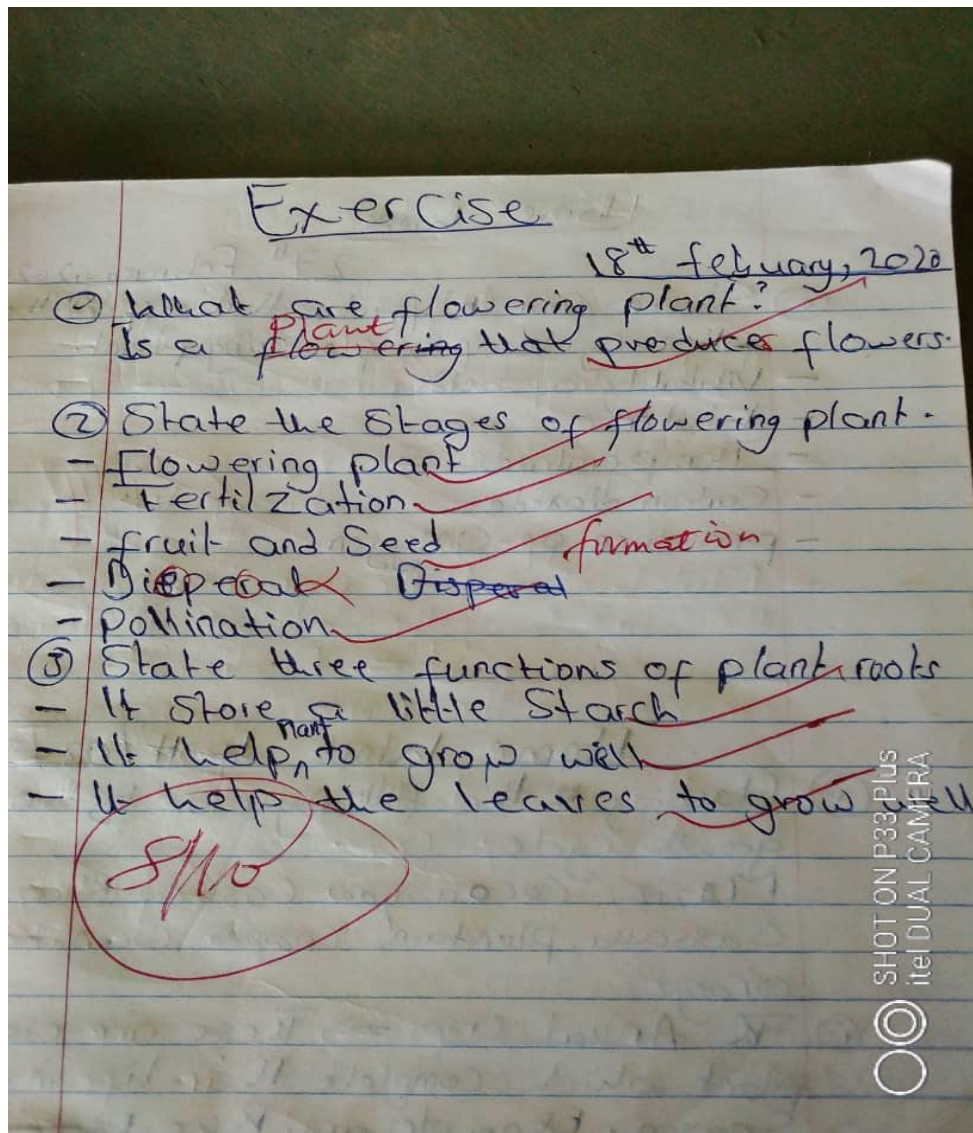 Exercise
18th febuary, 2020
① What are flowering plant?
Plant
Is a flowering that produces flowers.
② State the Stages of flowering plant.
- Flowering plant
- Fertilzation
- fruit and Seed formation
- Disperal Disperal
- Pollination
③ State three functions of plant roots
- It store a little Starch
plant
- It help to grow well
- It help the leaves to grow well
8/10
SHOT ON P33 Plus
itel DUAL CAMERA